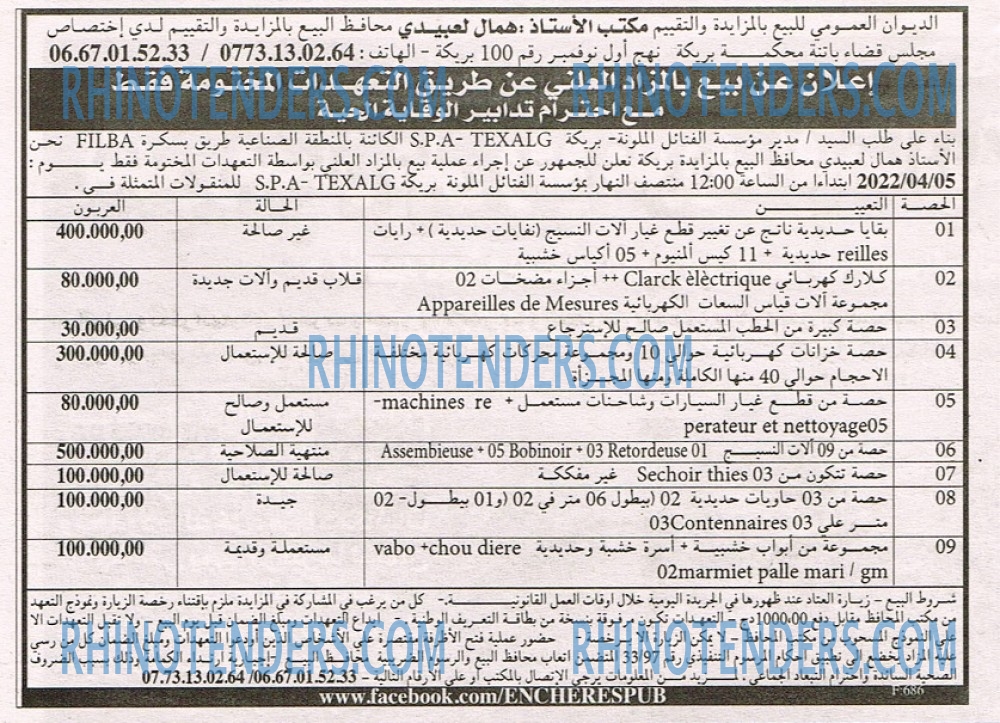 الديوان العمومي للبيع بالمزايدة والتقييم مكتب الأستاذ :همال لعبيدي محافظ البيع بالمزايدة والتقييم لدي إختصاص
مجلس قضاء باتنة محكمية بريكة نهج أول نوفمبر رقم 100 بريكة - الهاتف: 0773.13.02.64 / 06.67.01.52.33
إعلان عن بيع بالمزاد العلني عن طريق التعهدات المختومة فقط
RHINOTENDERS.COM RHINOTENDERS.COM
مع احترام تدابير الوقاية الحية
بناء على طلب السيد / مدير مؤسسة الفتائل الملونة- بريكة S.P.A- TEXALG الكائنة بالمنطقة الصناعية طريق بسكرة FILBA نحن
الأستاذ همال لعبيدي محافظ البيع بالمزايدة بريكة نعلن للجمهور عن إجراء عملية بيع بالمزاد العلني بواسطة التعهدات المختومة فقط يــوم :
2022/04/05 ابتداءا من الساعة 12:00 منتصف النهار بمؤسسة الفتائل الملونة بريكة S.P.A- TEXALG للمنقولات المتمثلة في.
الحصة التعييـــن الحالة العربون
01 بقايا حديدية ناتج عن تغيير قطع غيار آلات النسيج (نفايات حديدية )+ رايات غير صالحة 400.000,00
reilles حديدية + 11 كيس ألمنيوم + 05 أكياس خشبية
02 كلارك كهربائي Clarck èlèctrique ++ أجزاء مضخات 02 قلاب قديم وآلات جديدة 80.000,00
مجموعة آلات قياس السعات الكهربائية Appareilles de Mesures
03 حصة كبيرة من الحطب المستعمل صالح للإسترجاع قديم 30.000,00
04 حصة خزانات كهربائية حوالي 10 ومجموعة محركات كهربائية مختلفة صالحة للإستعمال 300.000,00
RHINOTENDERS.COM
الاحجام حوالي 40 منها الكاملة ومنها المجزأة
05 حصة من قطع غيار السيارات وشاحنات مستعمل + machines re- مستعمل وصالح 80.000,00
perateur et nettoyage05 للإستعمال
06 حصة من 09 آلات النسيج Assembieuse + 05 Bobinoir + 03 Retordeuse 01 منتهية الصلاحية 500.000,00
07 حصة تتكون من 03 Sechoir thies غير مفككة صالحة للإستعمال 100.000,00
08 حصة من 03 حاويات حديدية 02 (بيطول 06 متر في 02 (و01 بيطول- 02 جيدة 100.000,00
متر علي 03 03Contennaires
09 مجموعة من أبواب خشبية + أسرة خشبية وحديدية vabo +chou diere مستعملة وقديمة 100.000,00
02marmiet palle mari / gm
شروط البيع - زيارة العتاد عند ظهورها في الجريدة اليومية خلال اوقات العمل القانونية .- كل من يرغب في المشاركة في المزايدة ملزم بإقتناء رخصة الزيارة ونموذج التعهد
من مكتب المحافظ مقابل دفع 1000,00دج - التعهدات تكون مرفوقة بنسخة من بطاقة التعريف الوطنية
RHINOTENDERS.COM RHINOTENDERS.COM
07.73.13.02.64 /06.67.01.52.33
www.facebook.com/ENCHERESPUB
F:686